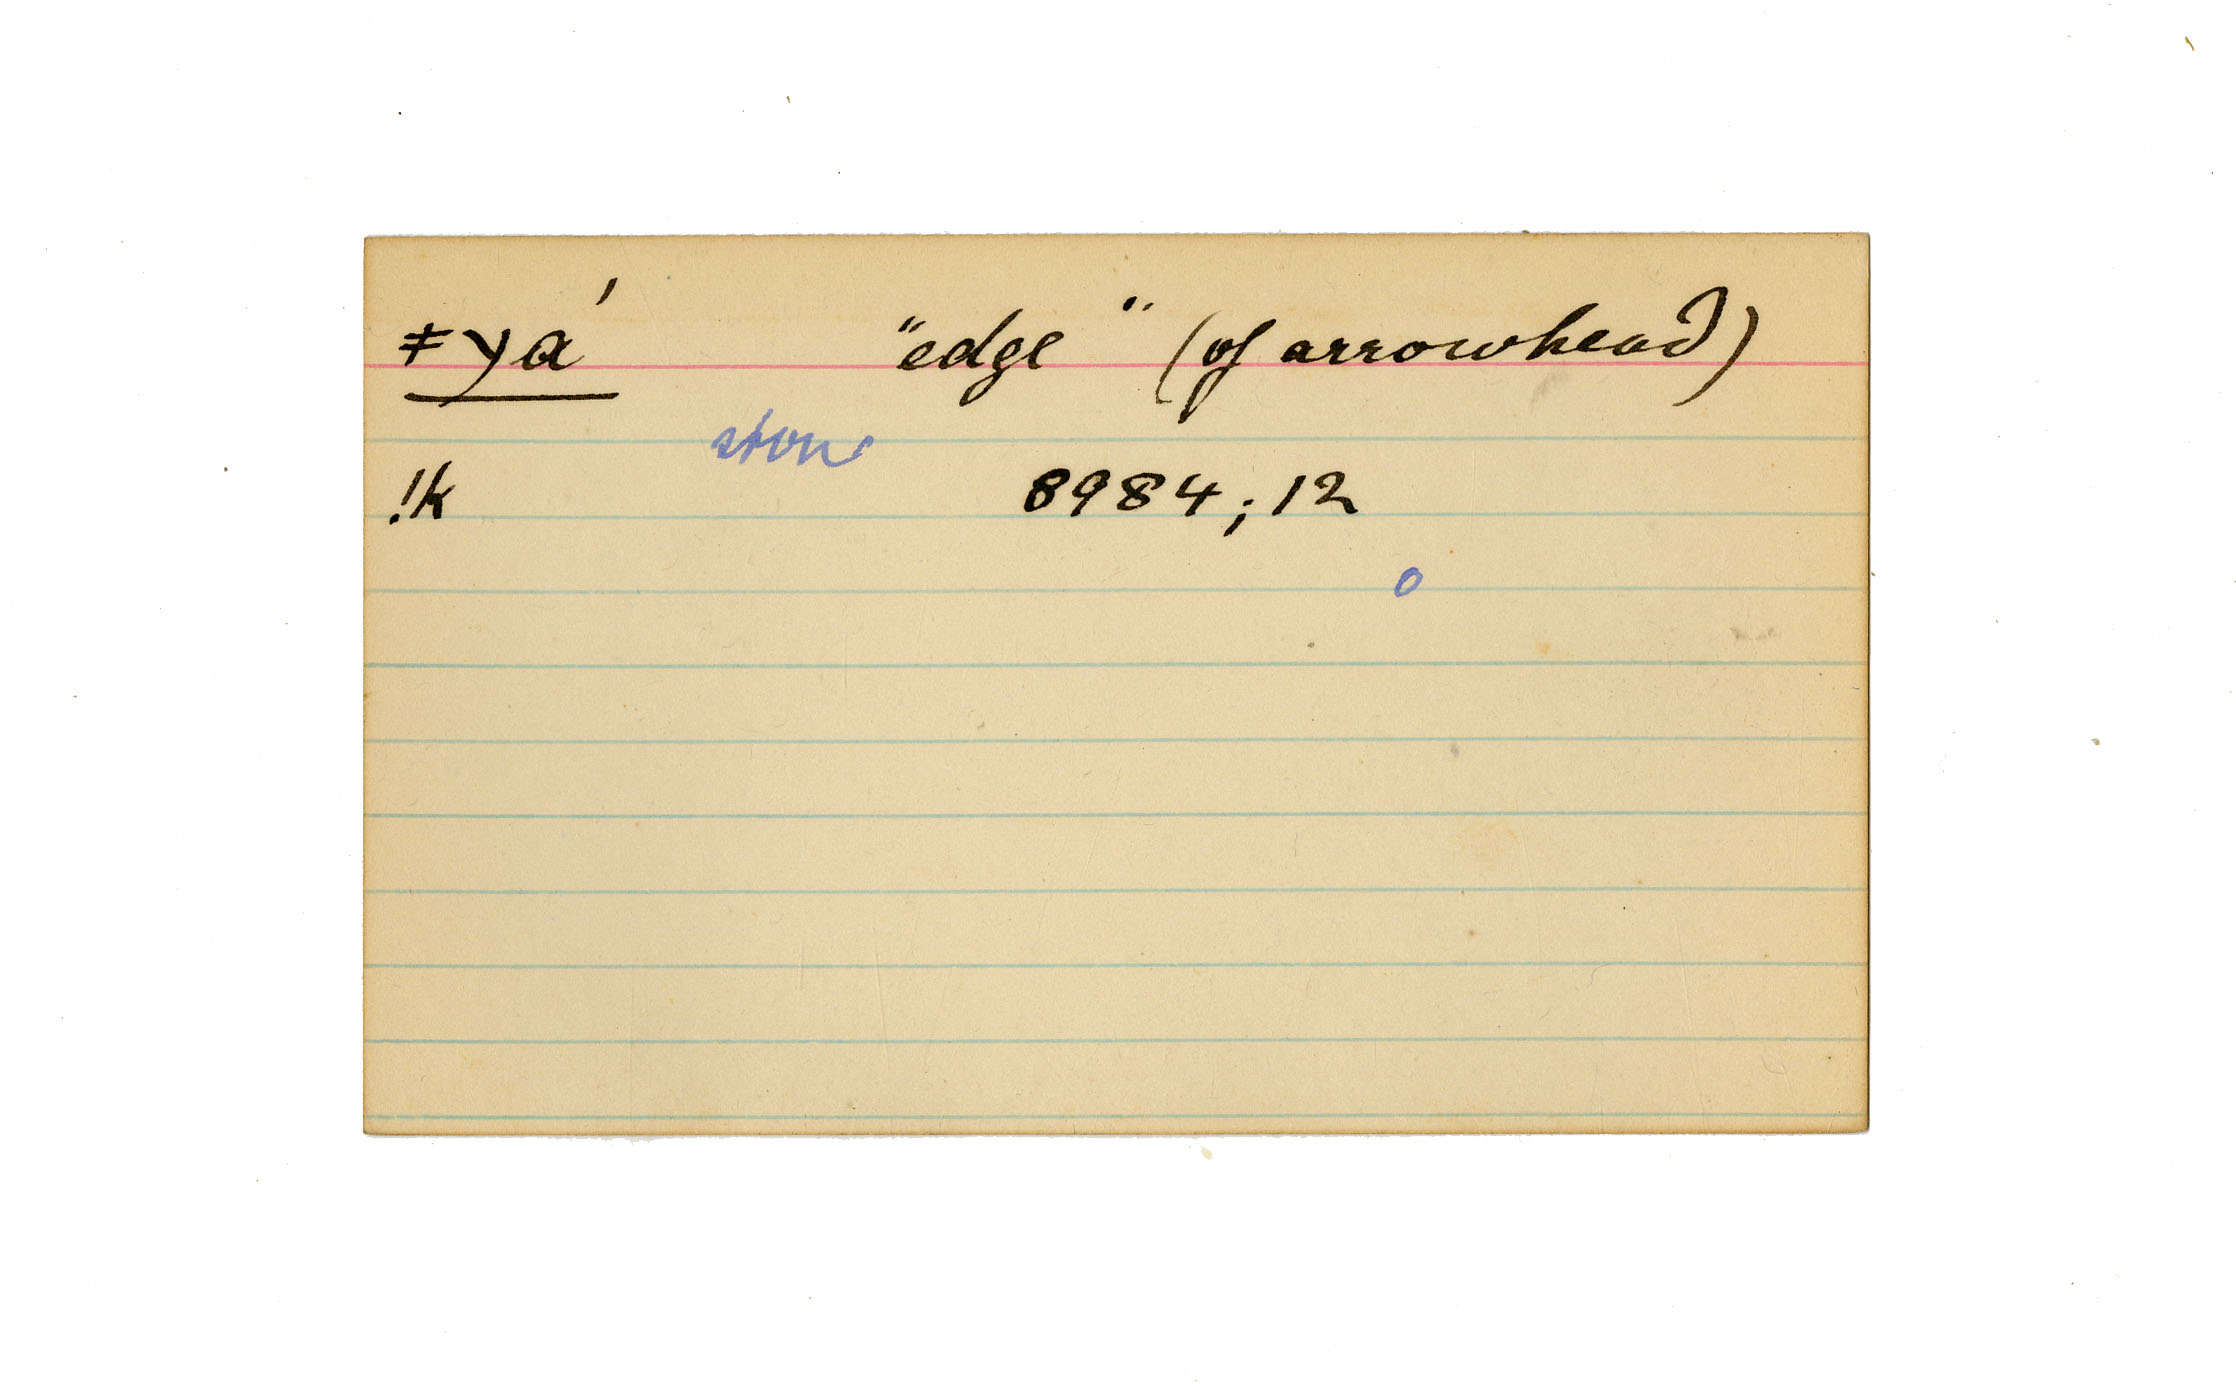 ǂyá "edge" (of arrowhead)
ston
!k 8984; 12
o